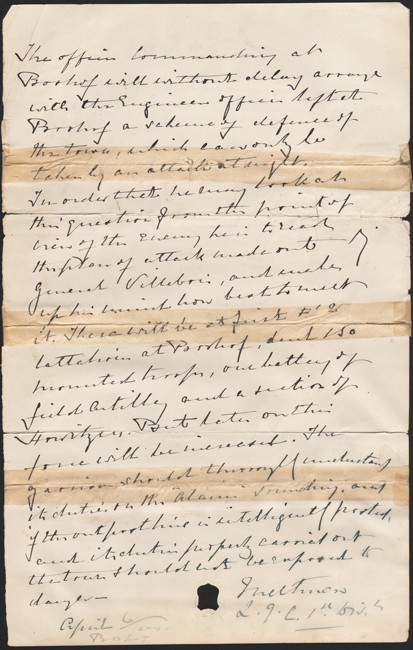 The officer Commanding at
Boshof will without delay arrange
with the Engineer officer left at
Boshof a scheme of defence of
the town, which can only be
taken by an attack at night.
In order that he may look at
this question from the point of
view of the Enemy he is to read
the plan of attack made out by
General Villebois, and make
up his mind how best to meet
it. There will be at first 2
battalions at Boshof, about 150
mounted troops, one battery of
field Artillery and a section of
Howitzers. But later on this
force will be increased. The
garrison should thoroughly understand
its duties on the "Alarm" sounding, and
if the outpost line is intelligently posted,
and its duties properly carried out
the town should not be exposed to
danger—
Methuen
L. G. C. 1st Div.
April 6
Boshof